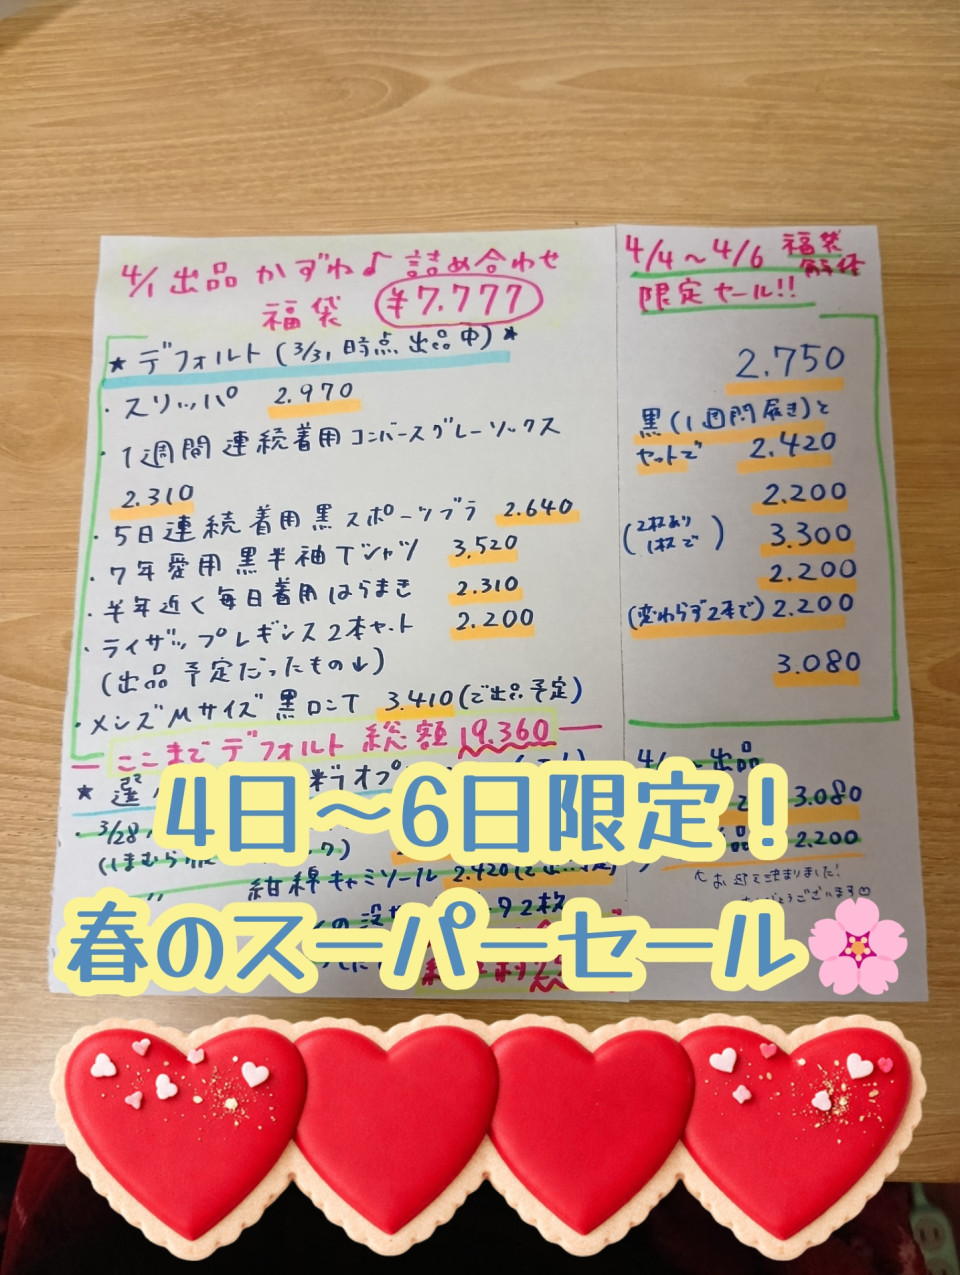 4/1 出品 かずね♪ 詰め合わせ
福袋 ¥7.777
★ デフォルト (3/31時点 出品中) ★
・スリッパ 2.970
・1週間 連続着用 コンバースグレーソックス
2.310
・5日連続着用黒スポーツブラ 2.640
・7年愛用黒半袖Tシャツ 3.520
・半年近く毎日着用はらまき 2.310
・ライザップレギンス2本セット 2.200
(出品予定だったもの↓)
・メンズMサイズ黒ロンT 3.410(で出品予定)
ここまでデフォルト 総額 19.360
★ 選
・3/28
(しまむら
〃 紺綿キャミソール 2.420
92枚
4/4〜4/6 福袋
解体
限定セール!!
2.750
黒(1週間履き)と
セットで 2.420
2.200
(2枚あり
1枚で) 3.300
2.200
(変わらず2本で) 2.200
3.080
出品
3.080
2.200
決まりました!
ありがとうございます♡
4日〜6日限定!
春のスーパーセール🌸